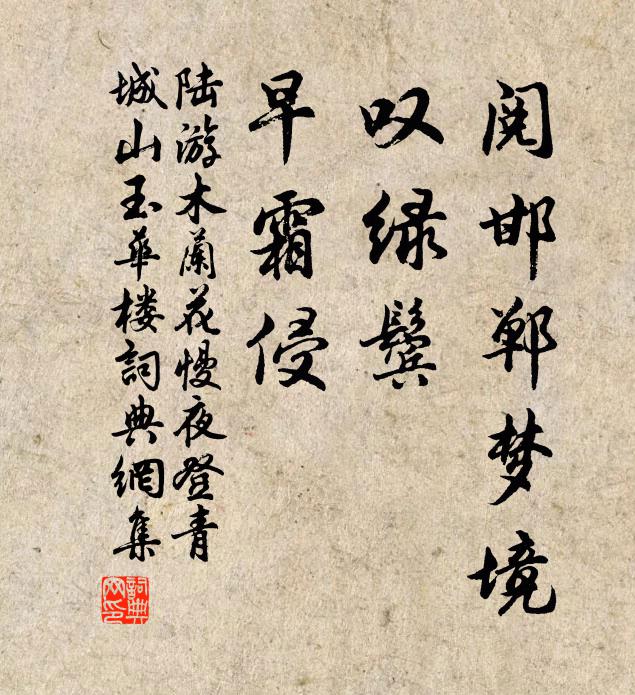 阅邯郸梦境
叹绿鬓
早霜侵
陆游木蘭花慢夜登青
城山玉華楼詞典網集
詞典网印